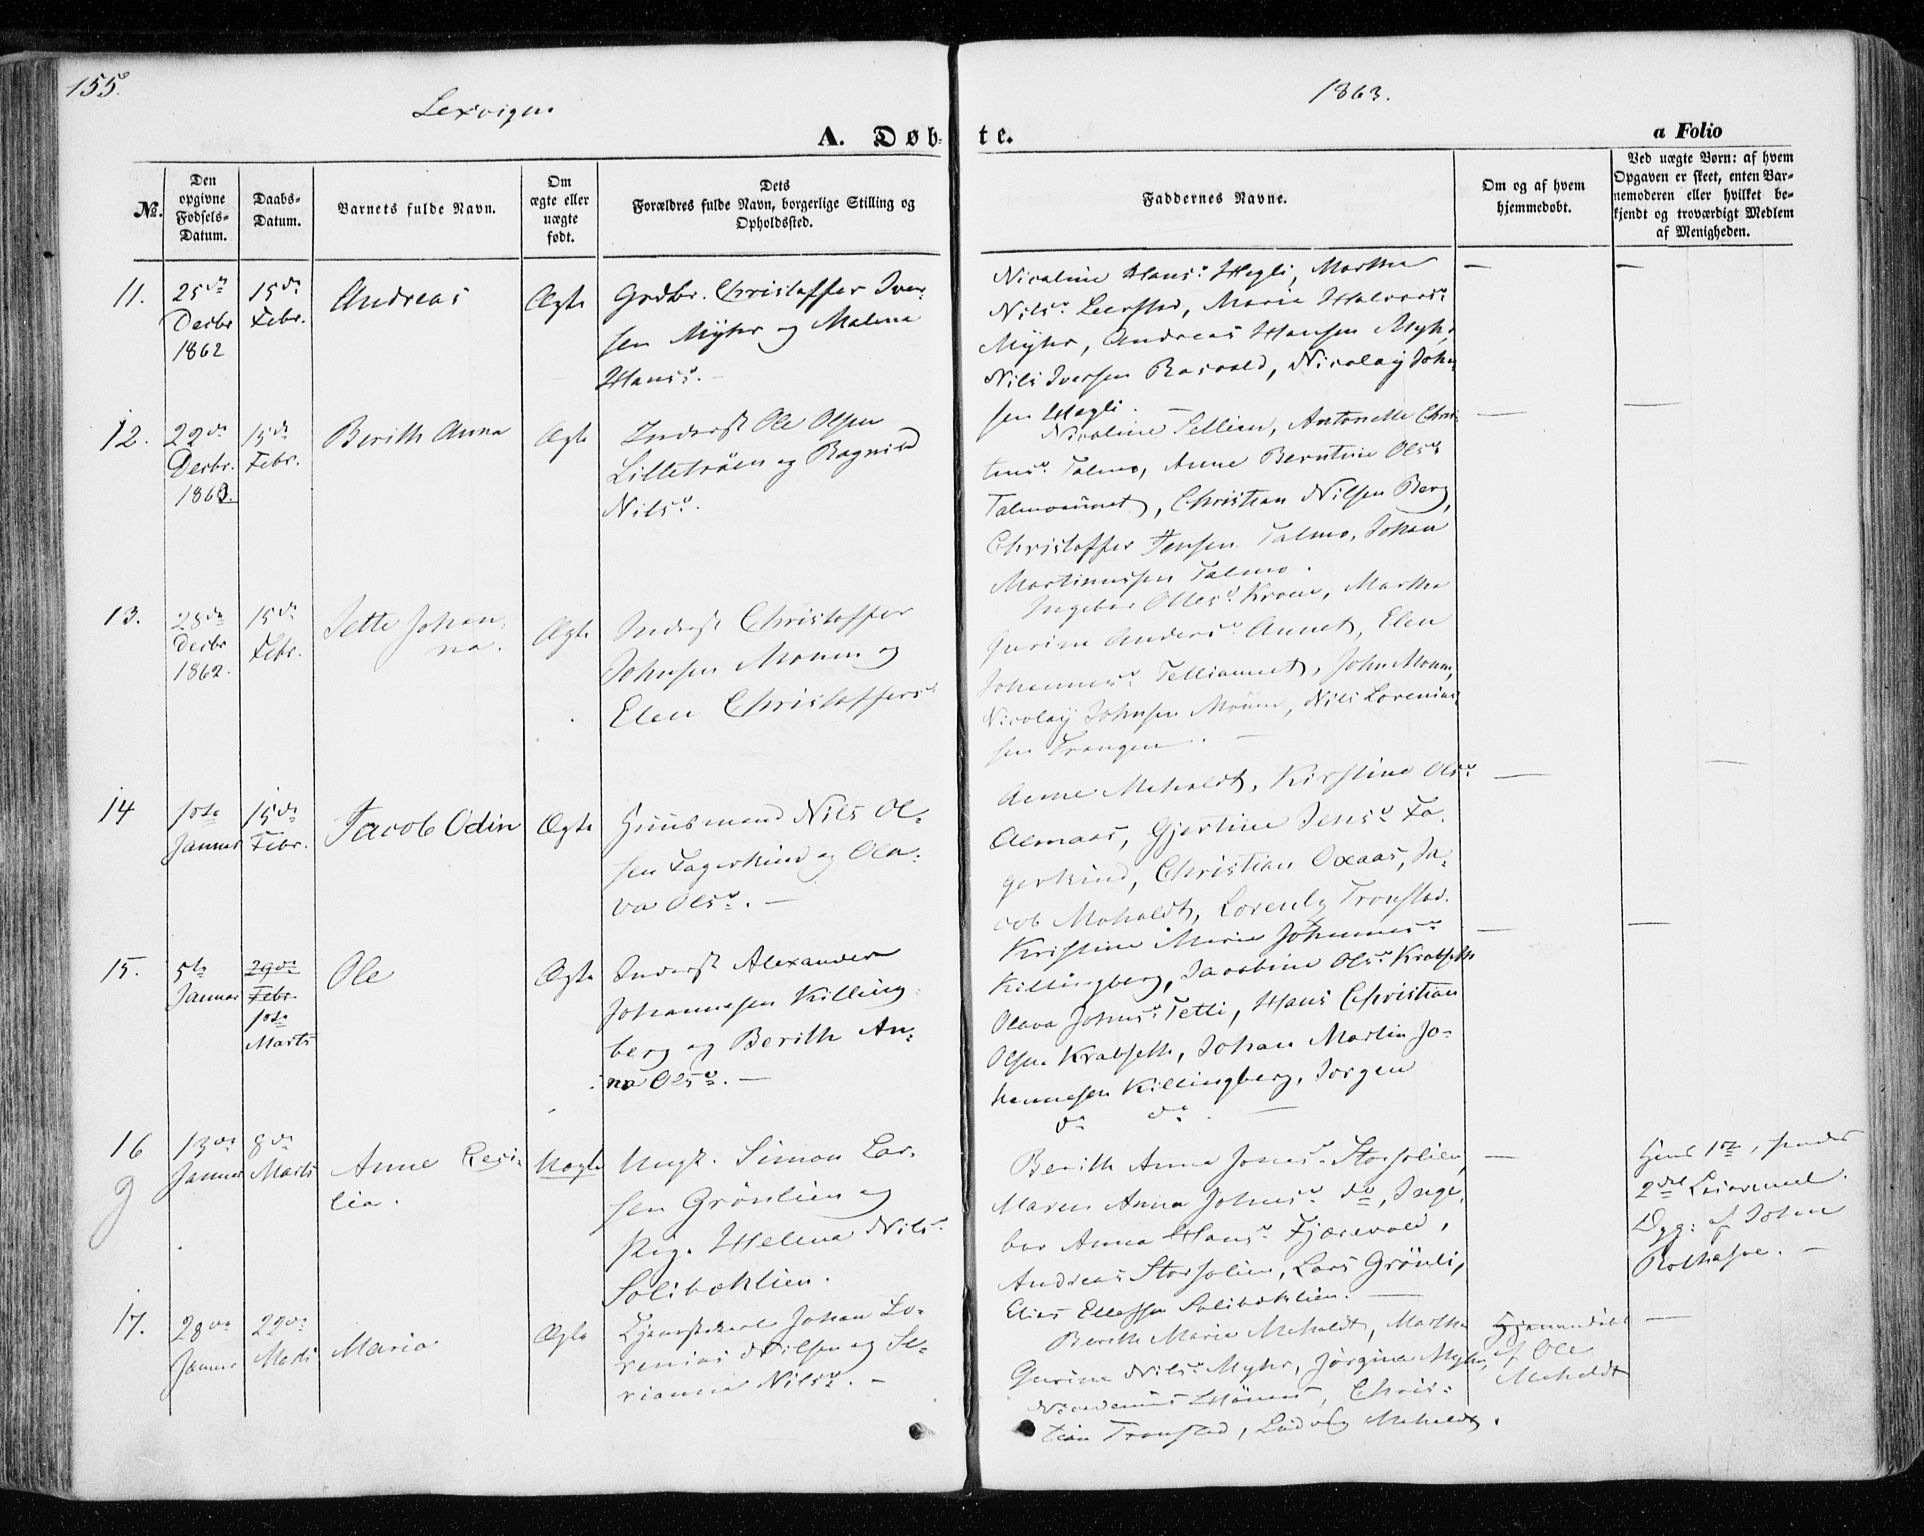 155.
Lexvigen
1863.
A. Døb- te.
a Folio
No.
Den opgivne Fødsels-Datum.
Daabs-Datum.
Barnets fulde Navn.
Om ægte eller uægte født.
Dets Forældres fulde Navn, borgerlige Stilling og Opholdssted.
Faddernes Navne.
Om og af hvem hjemmedøbt.
Ved uægte Børn: af hvem Opgaven er skeet, enten Barnemoderen eller hvilket bekjendt og troværdigt Medlem af Menigheden.
11.
25de Decbr 1862
15de Febr.
Andreas
Ægte
Grdbr. Christoffer Iver-
sen Myhr og Malena
Hansd. –
Nicoline Hansd. Hegli, Martha
Nilsd. Leerstad, Marie Halvorsd.
Myhr, Andreas Hansen Myhr,
Nils Iversen Rosvold, Nicolay John-
sen Hegli. –
12.
29de Decbr. 1860.
15de Febr.
Berith Anna
Ægte
Inderst Ole Olsen
Lilletrøen og Ragnild
Nilsd.
Nicoline Tellien, Antonette Chris-
tensd. Talmo, Anne Berntine Olsd.
Talmoaunet, Christian Nilsen Berg,
Christoffer Jensen Talmo, Johan
Martinussen Talmo.
13.
28de Decbr 1862.
15de Febr.
Jette Johan-
na.
Ægte
Inderst Christoffer
Johnsen Moum og
Elen Christoffersd.
Ingebor Ollesd. Kroen, Martha
Gurine Andersd. Aunet, Elen
Johannesd. Telliaunet, John Moum,
Nicolay Johnsen Moum, Nils Lorenias-
sen Trangen. –
14
1ste Januar
15de Febr.
Jacob Odin
Ægte
Huusmand Nils Ol-
sen Fagerkind og Ola-
va Olsd. –
Anne Moholdt, Kirstine Olsd.
Almaas, Gjertine Jensd. Fa-
gerkind, Christian Oxaas, Ja-
cob Moholdt, Lorents Tronstad.
15.
5te Januar
29de Febr. 1ste Marts
Ole
Ægte
Inderst Alexander
Johannesen Killing-
berg og Berith An-
na Olsd. –
Kristine Marie Johannesd.
Killingberg, Jacobine Olsd. Krabseth
Olava Johnsd. Tetli, Hans Christian
Olsen Krabseth, Johan Martin Jo-
hannesen Killingberg, Jørgen
do do. –
16
g
13de Januar
8de Marts
Anne Resi-
lia.
Uægte
Ungk. Simon Lar-
sen Grønlien og
Pig. Helena Nilsd.
Solibaklien.
Berith Anna Jonsd. Storsolien,
Maren Anna Johnsd. do, Inge-
bor Anna Hansd. Fjærevold,
Andreas Storsolien, Lars Grønli,
Elias Ellefsen Solibaklien. –
Hans 1ste, hendes
2det Leiermaal.
Opg: af John
Rolhasve. –
17.
28de Januar
22de Marts
Maria
Ægte
Tjenestekarl Johan Lo-
renias Nilsen og Se-
rianna Nilsd. –
Berith Marie Moholdt, Martha
Gurine Nilsd. Myhr, Jørgine Myhr,
Chris-
tian Tronstad, Ludvig Moholdt.
Hjemmedøbt
af Ole
Moholdt